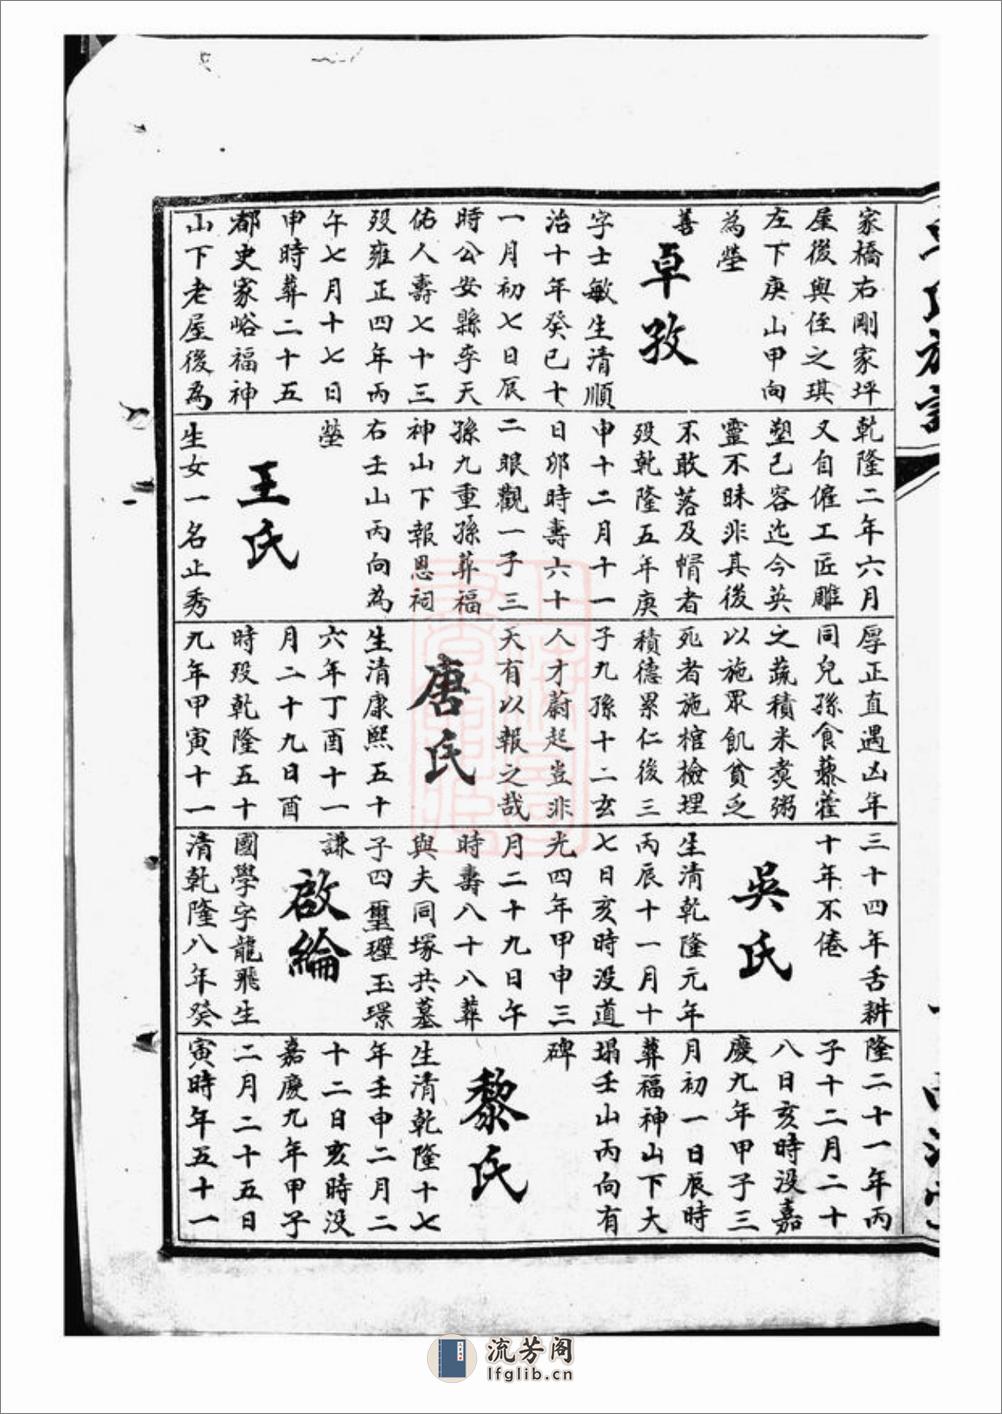 家橋右剛家坪
屋後與侄之琪
左下庚山甲向
為塋
善
卓孜
字士敏生清順
治十年癸巳十
一月初七日辰
時公安縣李天
佑人壽七十三
歿雍正四年丙
午七月十七日
申時葬二十五
都史家峪福神
山下老屋後為
乾隆二年六月
又自僱工匠雕
塑己容迄今英
靈不昧非其後
不敢落及帽者
歿乾隆五年庚
申十二月十一
日卯時壽六十
二眼觀一子三
孫九重孫葬福
神山下報恩祠
右壬山丙向為
塋
王氏
生女一名止秀
厚正直遇凶年
同兒孫食藜藿
之蔬積米煑粥
以施眾飢貧乏
死者施棺檢埋
積德累仁後三
子九孫十二玄
人才蔚起豈非
天有以報之哉
唐氏
生清康熙五十
六年丁酉十一
月二十九日酉
時歿乾隆五十
九年甲寅十一
三十四年舌耕
十年不倦
吳氏
生清乾隆元年
丙辰十一月十
七日亥時没道
光四年甲申三
月二十九日午
時壽八十八葬
與夫同塚共墓
子四璽瓗玉璟
謙
啟綸
國學字龍飛生
清乾隆八年癸
隆二十一年丙
子十二月二十
八日亥時没嘉
慶九年甲子三
月初一日辰時
葬福神山下大
塌壬山丙向有
碑
黎氏
生清乾隆十七
年壬申二月二
十二日亥時没
嘉慶九年甲子
二月二十五日
寅時年五十一
流芳阁
lfglib.cn